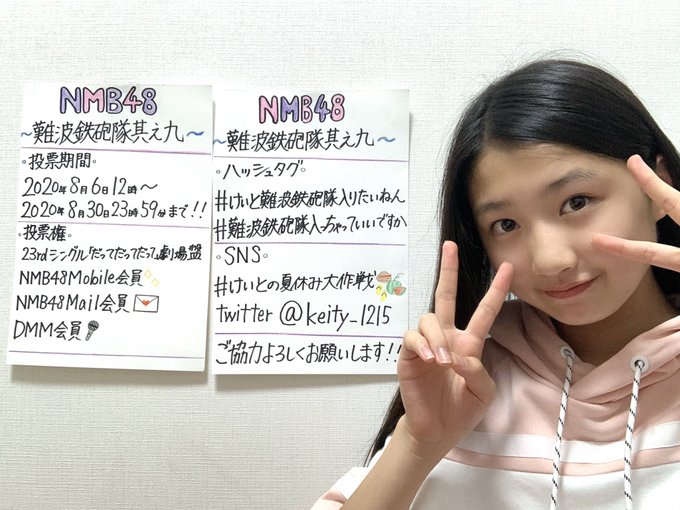 NMB48
~難波鉄砲隊其え九~
・投票期間。
2020年8月6日12時〜
2020年8月30日23時59分まで!!
・投票権。
23rdシングル「だってだってだって」劇場盤
NMB48Mobile会員
NMB48Mail会員
DMM会員
NMB48
~難波鉄砲隊其え九~
・ハッシュタグ。
#けいと難波鉄砲隊入りたいねん
#難波鉄砲隊入っちゃっていいですか
・SNS。
#けいとの夏休み大作戦
twitter @keity_1215
ご協力よろしくお願いします!!